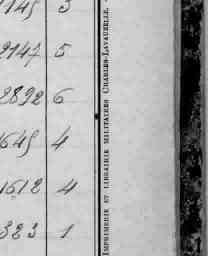 1145 3
2147 5
2892 6
1645 4
1612 4
323 1
IMPRIMERIE ET LIBRAIRIE MILITAIRES CHARLES-LAVAUZELLE.